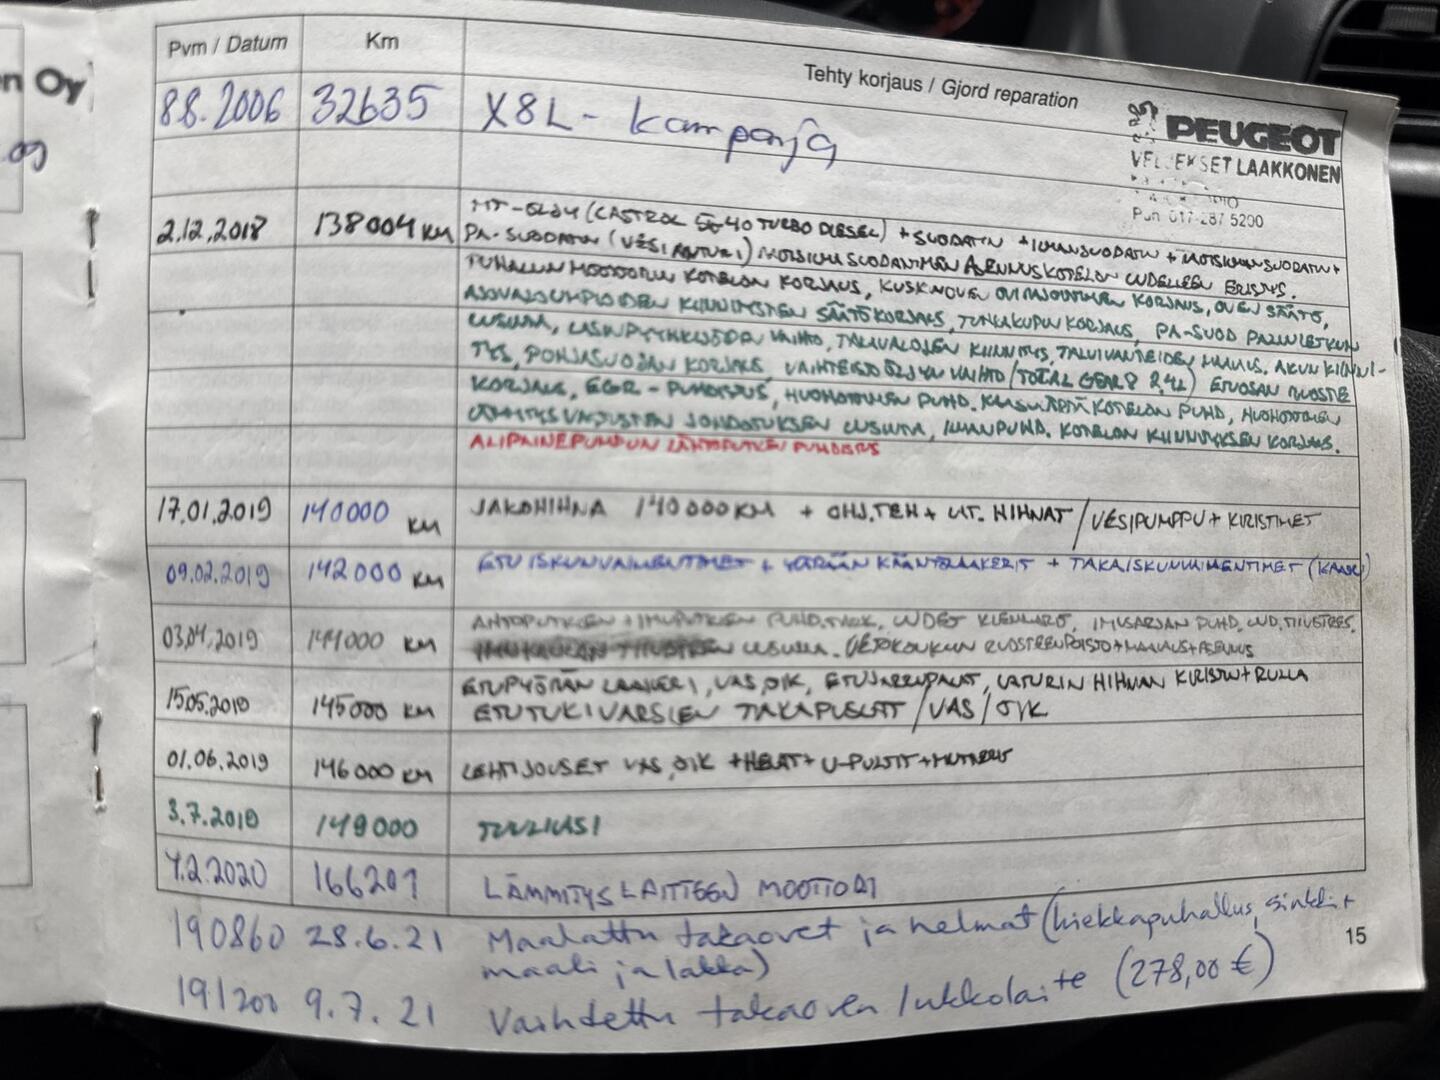 n Oy
.09
Pvm / Datum Km Tehty korjaus / Gjord reparation
8.8.2006 32635 X8L - kampanja
PEUGEOT
VELJEKSET LAAKKONEN
Puh. 017-287 5200
2.12.2018 138004 KM MT-ÖLJY (CASTROL 5-40 TURBO DIESEL) + SUODATIN + ILMANSUODATIN + MOISIILMANSUODATIN +
PA-SUODATIN (VESIANTURI) MOISIILMASUODATTIMEN ASENNUSKOTELON UUDELLEEN ERISTYS.
PUHALLIN MOOTTORIN KOTELON KORJAUS, KUSKINOVEN OVITASKUTTIMEN KORJAUS, OVEN SÄÄTÖ,
AJOVALOUMPIOIDEN KIINNITYSTEN SÄÄTÖKORJAUS, TUHKAKUPIN KORJAUS, PA-SUOD PAINELETKUN
UUSINTA, LASINPYYHKIJÖIDEN VAIHTO, TAKAVALOJEN KIINNITYS, TALVIVANTEIDEN MAALAUS. AKUN KIINNI-
TYS, POHJASUOJAN KORJAUS, VAIHTEISTOÖLJYN VAIHTO (TOTAL GEAR 8 2,4L) ETUOSAN RUOSTE
KORJAUS, EGR - PUHDISTUS, HUOHOTTIMEN PUHD. KAASULÄPPÄKOTELON PUHD, HUOHOTTIMEN
LÄMMITYSVASTUSTEN JOHDOTUKSEN UUSINTA, ILMANPUHD. KOTELON KIINNIKKEEN KORJAUS.
ALIPAINEPUMPUN LÄHTÖPUTKEN PUHDISTUS
17.01.2019 140000 KM JAKOHIHNA 140000 KM + OHJ.TEH + LAT. HIHNAT / VESIPUMPPU + KIRISTIMET
09.02.2019 142000 KM ETUISKUNVAIMENTIMET + YLÄPÄÄN KÄÄNTÖLAAKERIT + TAKAISKUNVAIMENTIMET (KAASU)
03.04.2019 144000 KM AHTOPUTKIEN + IMUPUTKIEN PUHD. TARK, UUDET KLEMMARIT, IMUSARJAN PUHD, UUD. TIIVISTEET.
UUSINTA. VETOKOUKUN RUOSTEENPOISTO + MAALAUS + ASENNUS
15.05.2019 145000 KM ETUPYÖRÄN LAAKERI, VAS, OIK, ETUJARRUPALAT, LATURIN HIHNAN KIRISTIN + RULLA
ETUTUKIVARSIEN TAKAPUSLAT / VAS / OIK
01.06.2019 146000 KM LEHTIJOUSET VAS, OIK + HELAT + U-PULTIT + MUTTERIT
3.7.2019 149000 TUULILASI
4.2.2020 166201 LÄMMITYSLAITTEEN MOOTTORI
190860 28.6.21 Maalattu takaovet ja helmat (hiekkapuhallus, sinkki +
maali ja lakka)
15
191200 9.7.21 Vaihdettu takaoven lukkolaite (278,00 €)